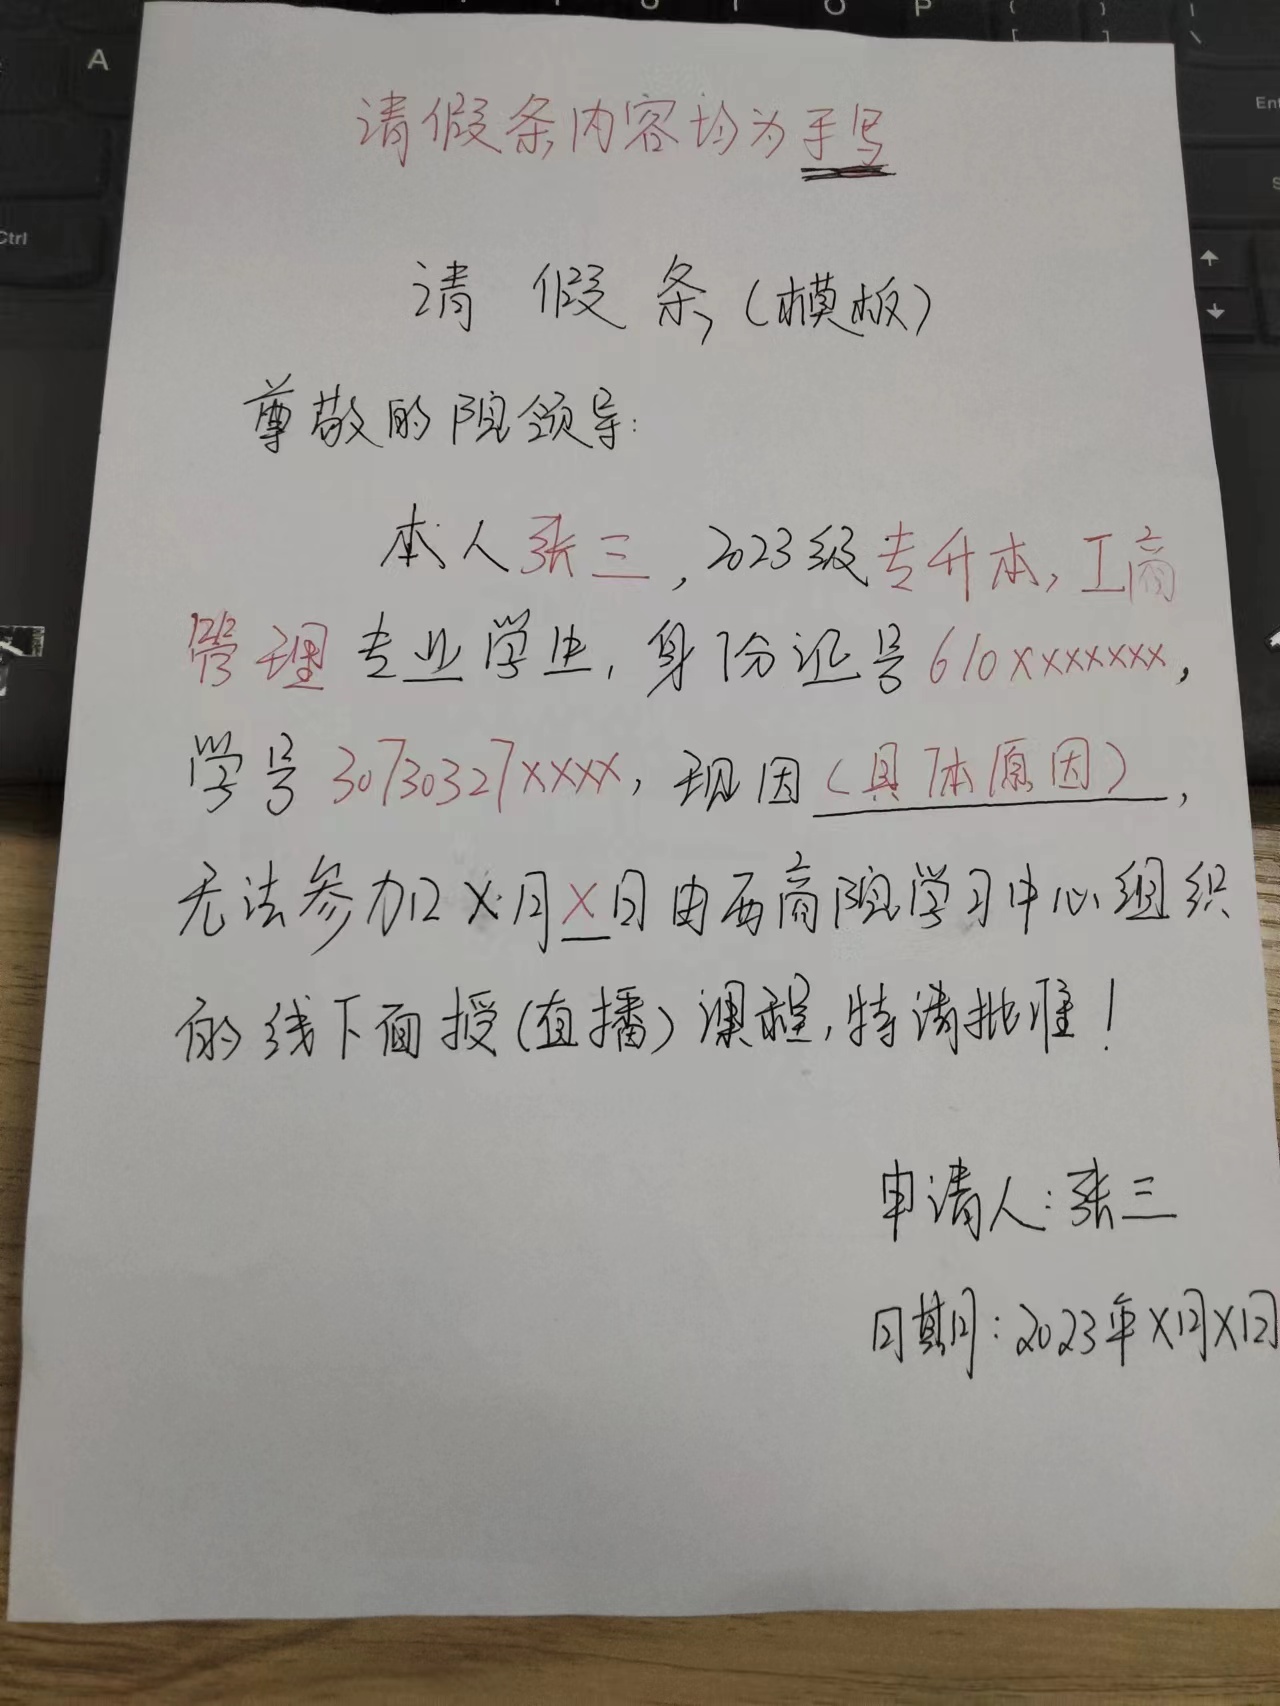 A
O
P
Ctrl
请假条内容均为手写
请假条(模板)
尊敬的院领导:
本人张三,2023级专升本,工商
管理专业学生,身份证号610xxxxxxx,
学号30730327xxxx,现因(具体原因),
无法参加X月X日由西商院学习中心组织
的线下面授(直播)课程,特请批准!
申请人:张三
日期:2023年X月X日